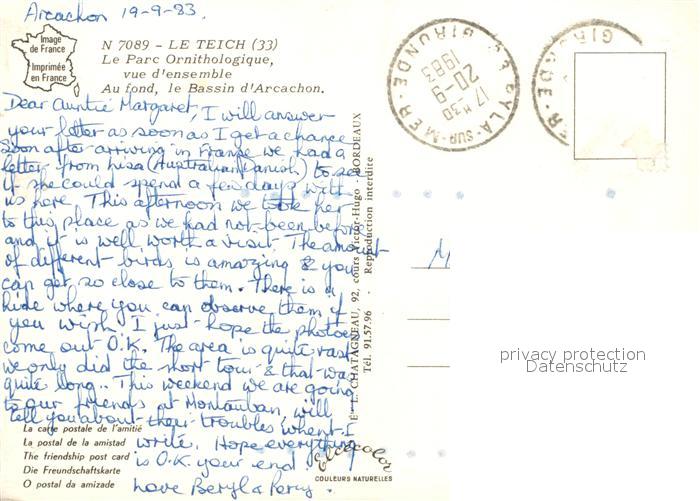 Arcachon 19-9-83.
Image
de France
Imprimée
en France
N 7089 - LE TEICH (33)
Le Parc Ornithologique,
vue d'ensemble
Au fond, le Bassin d'Arcachon.
Dear Auntie Margaret, I will answer
your letter as soon as I get a chance
Soon after arriving in France we had a
letter from Lisa (Australian Danish) to see
if she could spend a few days with
us here. This afternoon we took her
to this place as we had not been before
and it is well worth a visit. The amount
of different birds is amazing & you
can get so close to them. There is a
hide where you can observe them if
you wish I just hope the photoes
come out O.K. The area is quite vast
we only did the short tour & that was
quite long.. This weekend we are going
to our friends at Montauban, will
tell you about their troubles when I
write. Hope everything
is O.K. your end.
Love Beryl & Percy.
La carte postale de l'amitié
La postal de la amistad
The friendship post card
Die Freundschaftskarte
O postal da amizade
Elcécolor
COULEURS NATURELLES
Éd. L. CHATAGNEAU, 92, cours Victor-Hugo - BORDEAUX
Tél. 91.57.96 - Reproduction interdite
PYLA-SUR-MER
GIRONDE
17 H 30
20-9
1983
GIRONDE
MER
M
privacy protection
Datenschutz